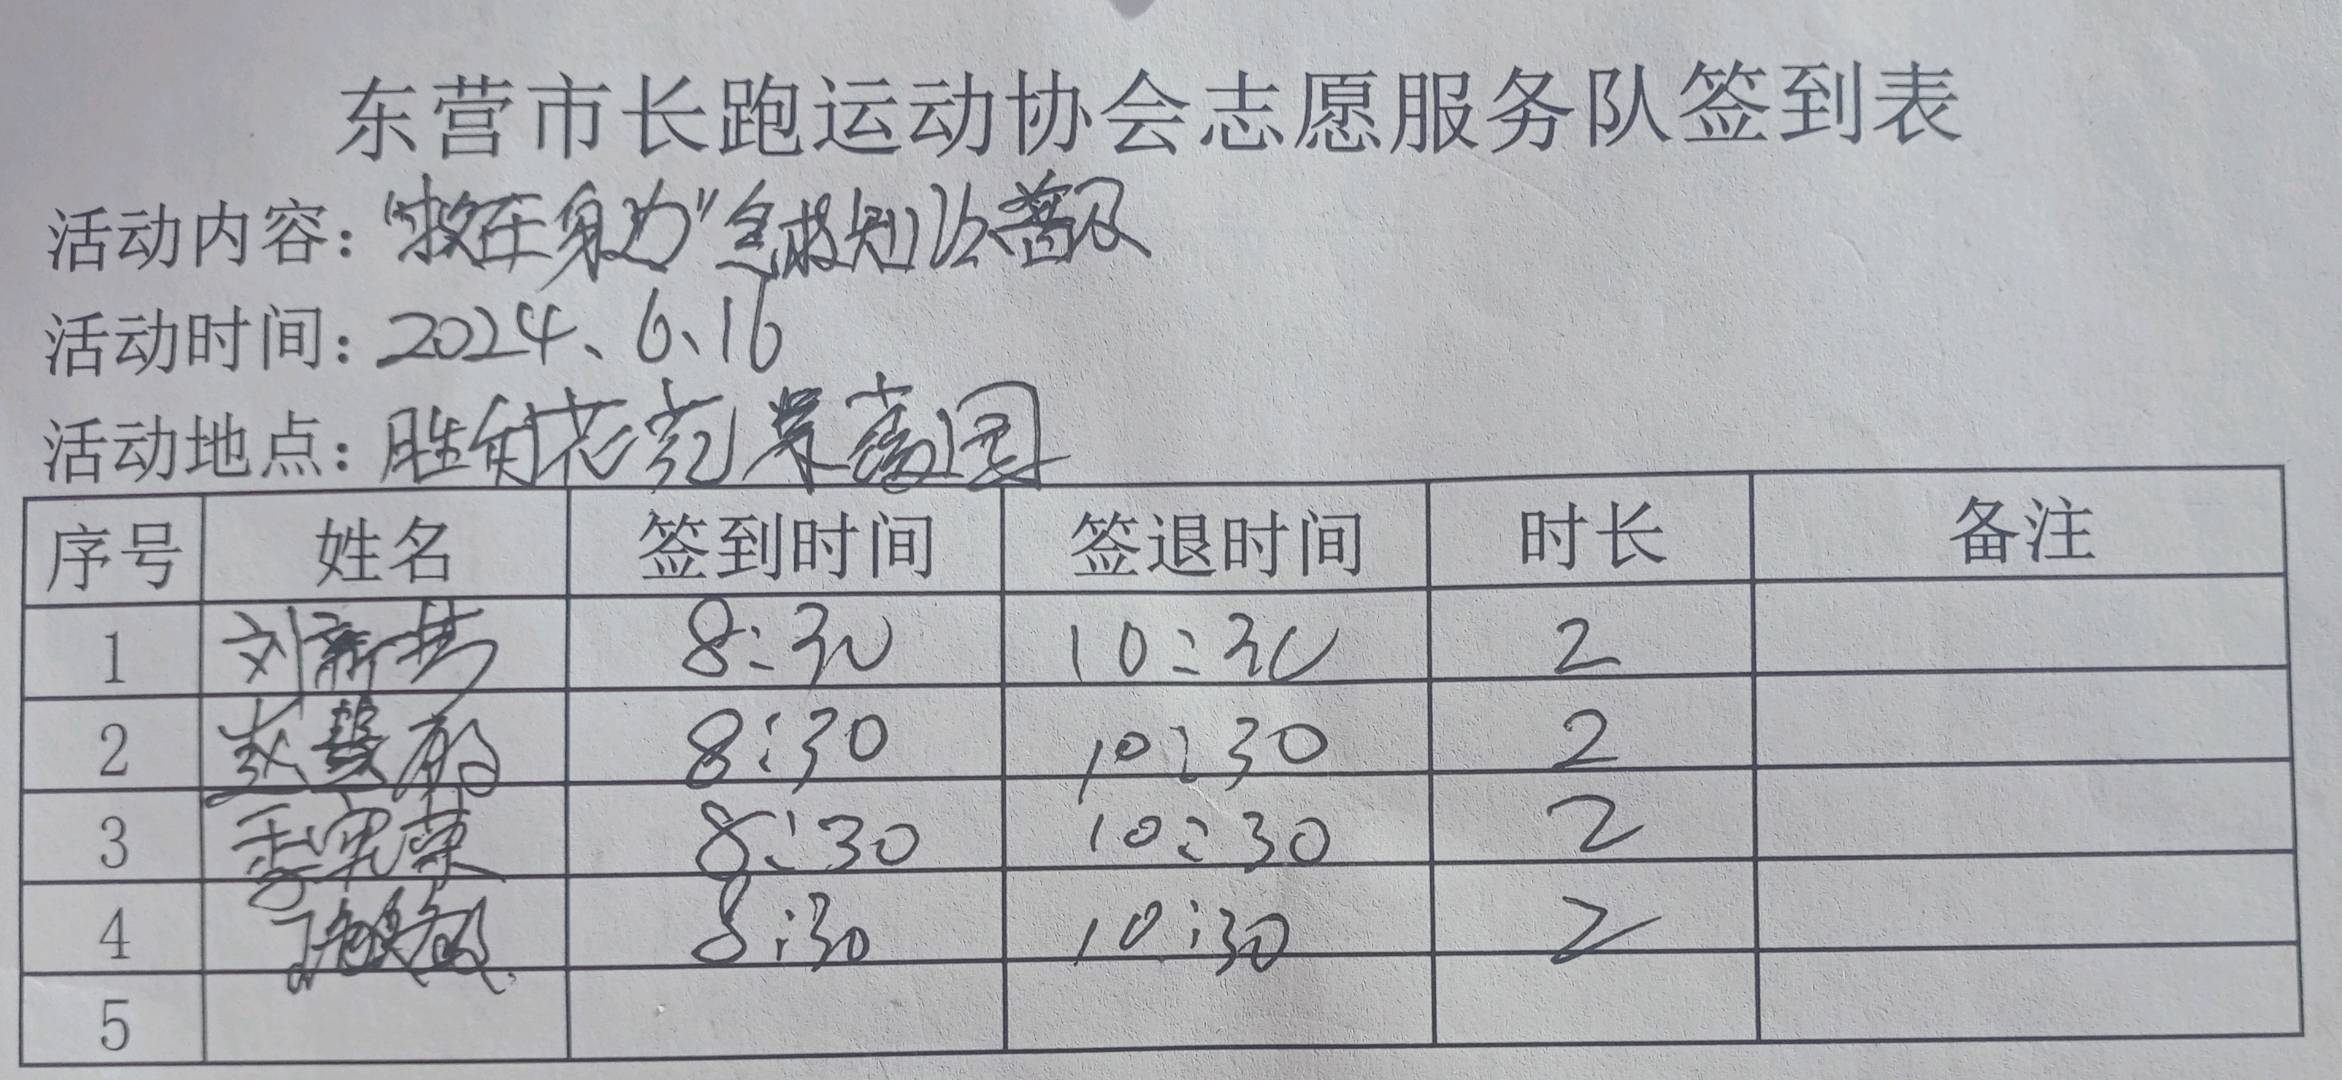 东营市长跑运动协会志愿服务队签到表
活动内容：“救在身边”急救知识普及
活动时间：2024、6、16
活动地点：胜利花苑
序号 姓名 签到时间 签退时间 时长 备注
1 刘新 8:30 10:30 2
2 赵慧 8:30 10:30 2
3 8:30 10:30 2
4 8:30 10:30 2
5